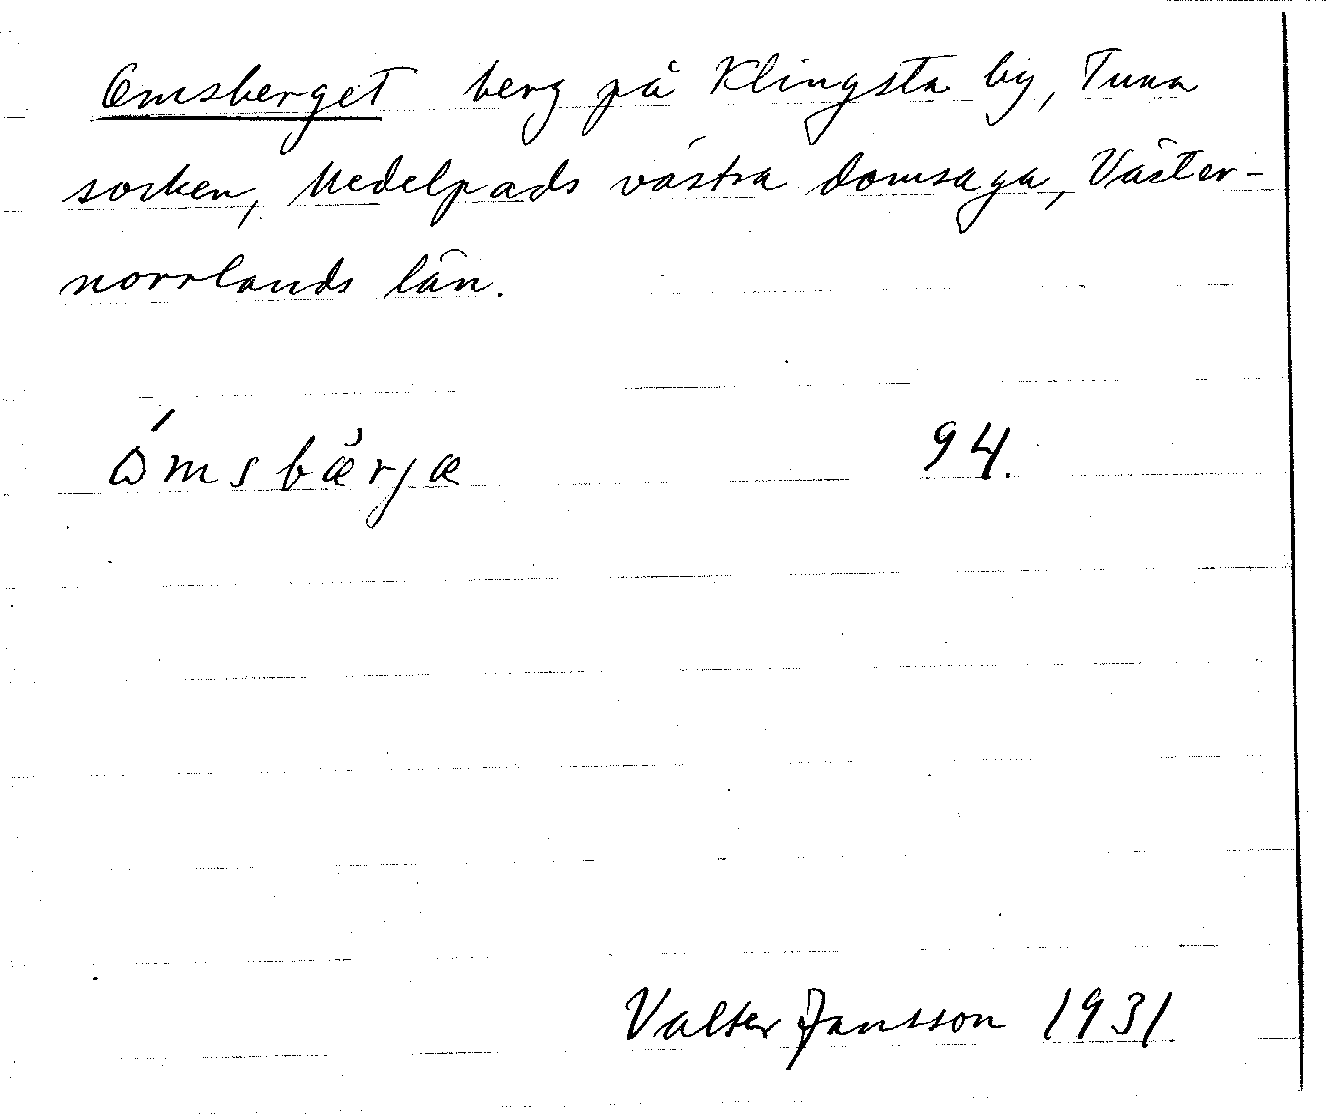 Omsberget berg på Klingsta by, Tuna
socken, Medelpads västra domsaga, Väster-
norrlands län.
ómsbærjæ 94.
Valter Jansson 1931